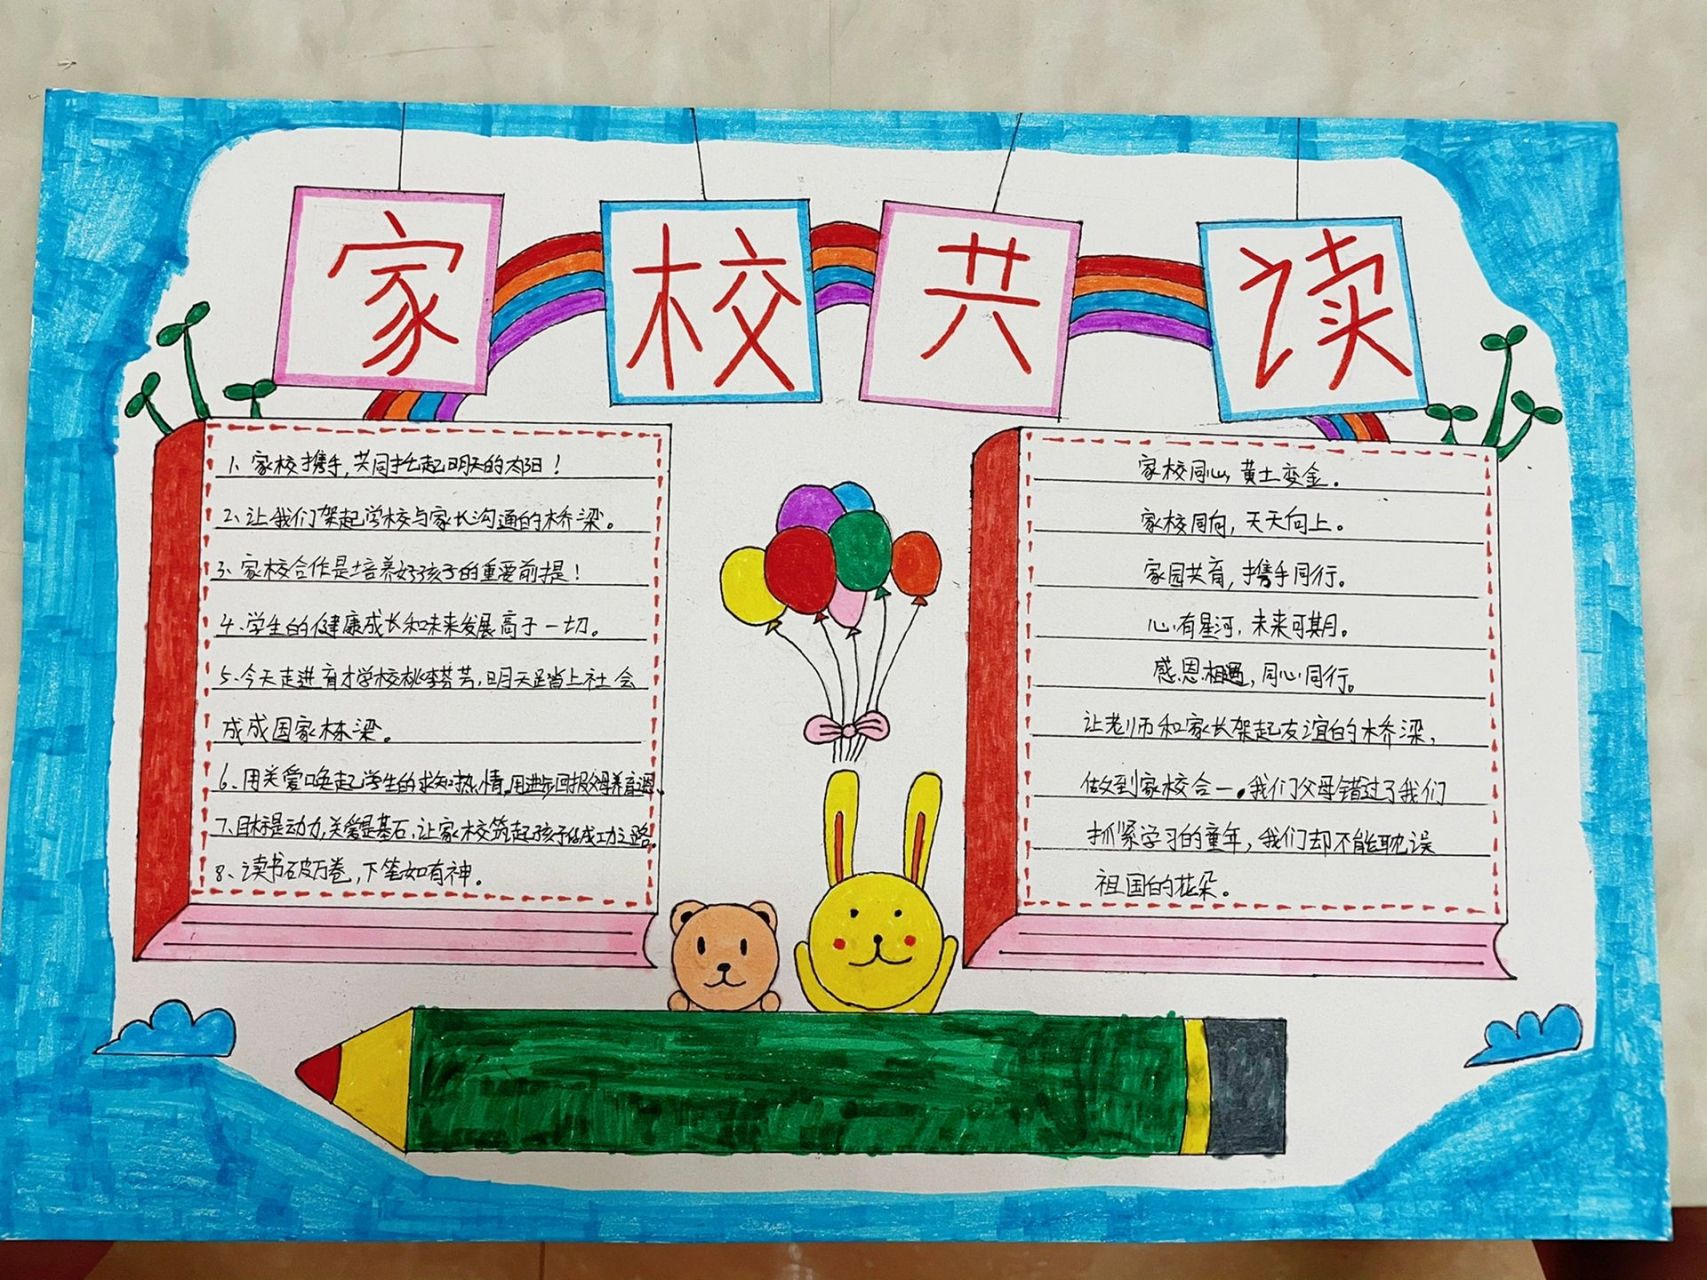 家校共读
1、家校携手,共同托起明天的太阳!
2、让我们架起学校与家长沟通的桥梁。
3、家校合作是培养好孩子的重要前提!
4、学生的健康成长和未来发展高于一切。
5、今天走进育才学校桃李芬芳,明天足踏上社会
成成国家栋梁。
6、用关爱唤起学生的求知热情,用进步回报父母养育恩。
7、目标是动力,关爱是基石,让家校筑起孩子的成功之路。
8、读书破万卷,下笔如有神。
家校同心,黄土变金。
家校同向,天天向上。
家园共育,携手同行。
心有星河,未来可期。
感恩相遇,同心同行。
让老师和家长架起友谊的桥梁,
做到家校合一。我们父母错过了我们
抓紧学习的童年,我们却不能耽误
祖国的花朵。